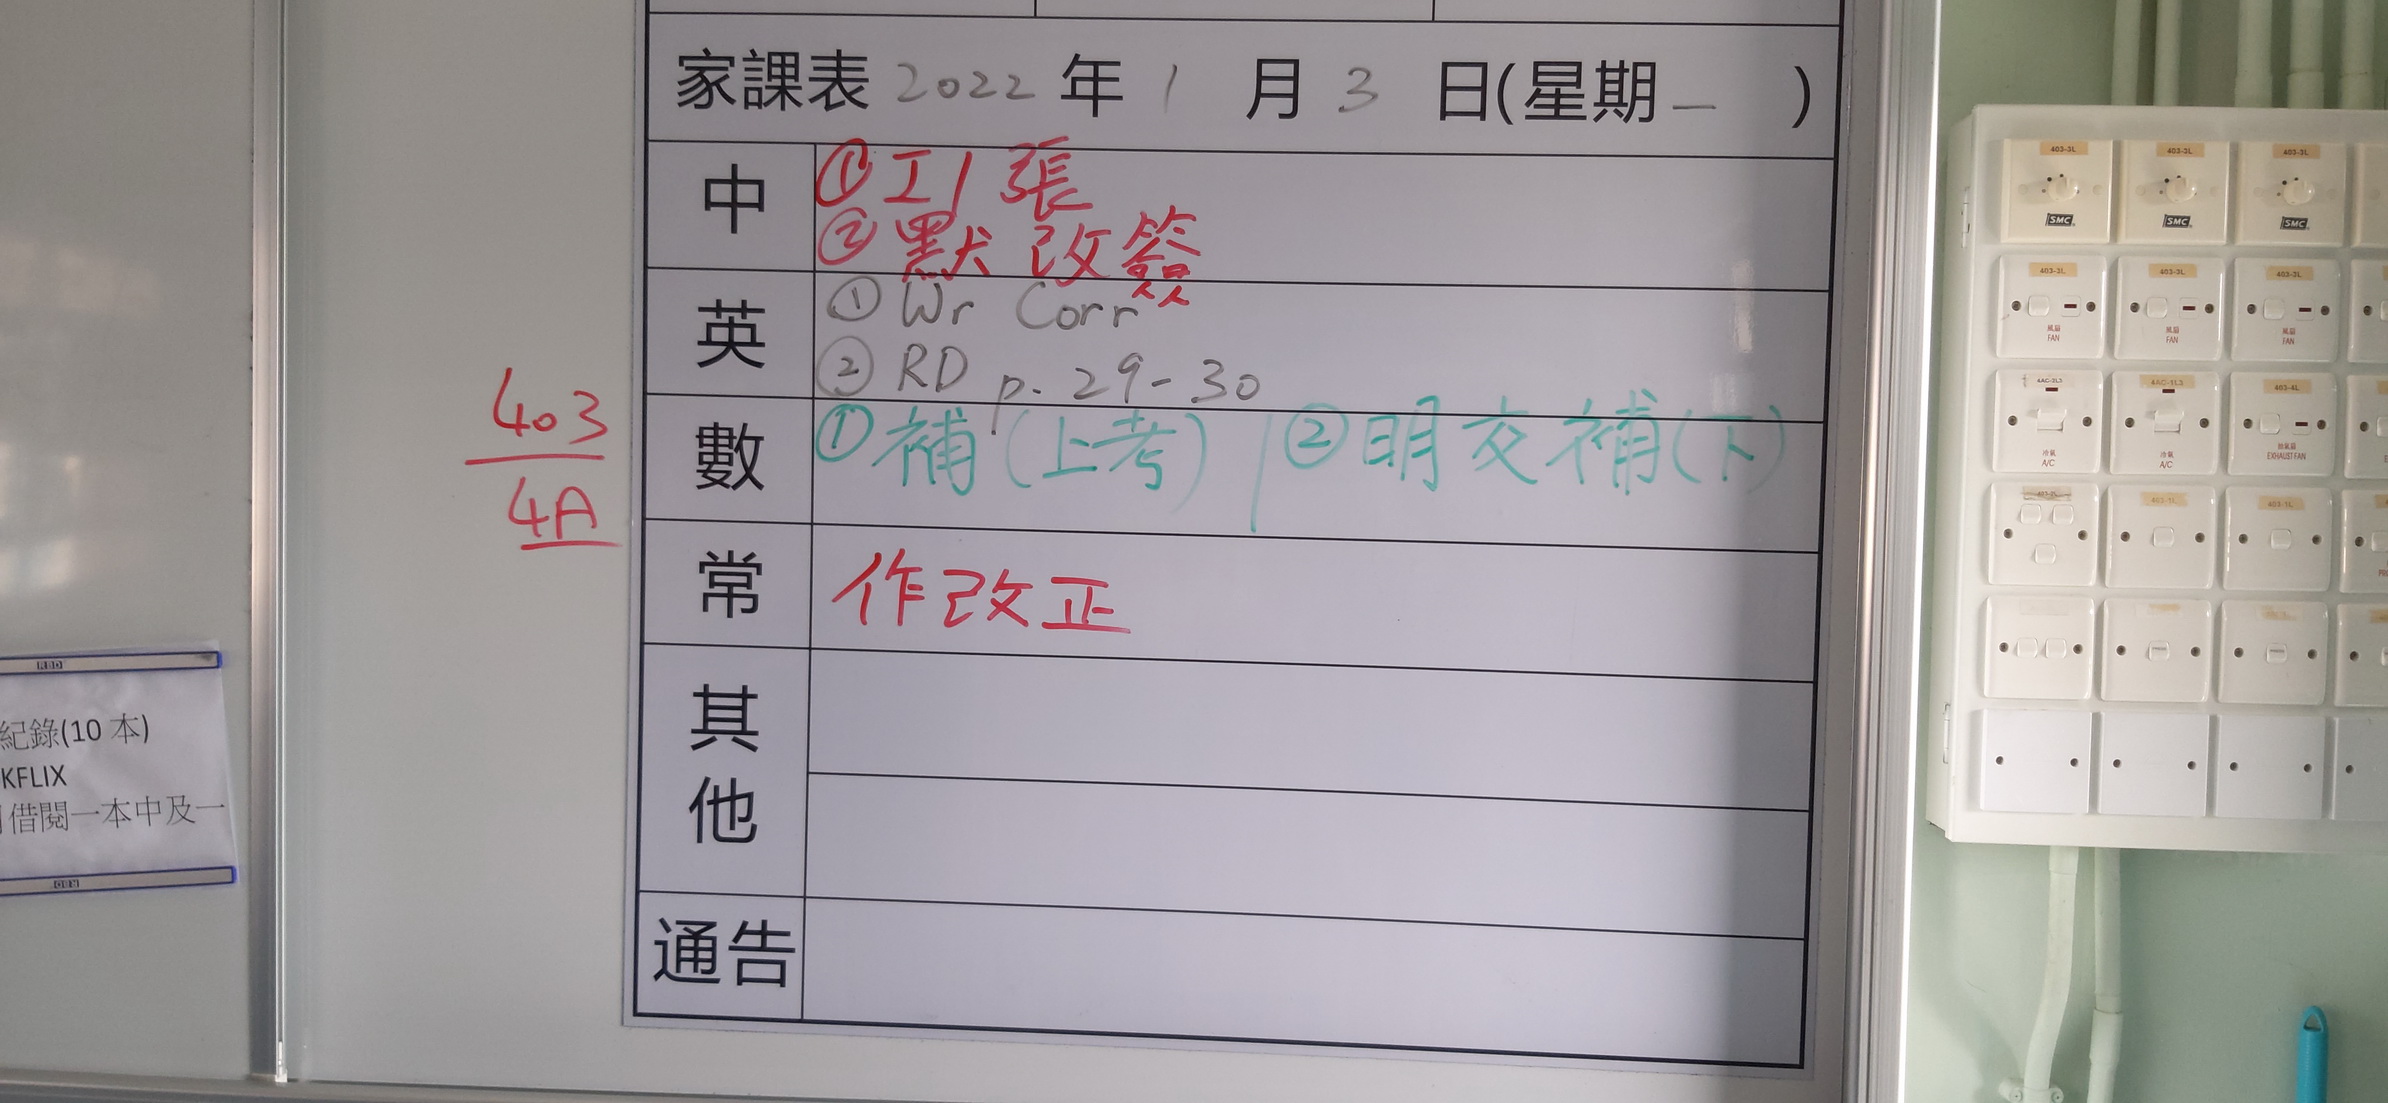 家課表 2022 年 1 月 3 日(星期一 )
中
① 工1張
② 默改簽
英
① Wr Corr
② RD p. 29-30
數
① 補(上考) | ② 明交補(下)
常
作改正
其他
通告
403
4A
紀錄(10 本)
KFLIX
借閱一本中及一
403-3L
403-3L
403-3L
SMC
SMC
SMC
403-3L
403-3L
403-3L
風扇
FAN
風扇
FAN
風扇
FAN
4AC-2L3
4AC-1L3
403-4L
冷氣
A/C
冷氣
A/C
抽氣扇
EXHAUST FAN
403-1L
403-1L